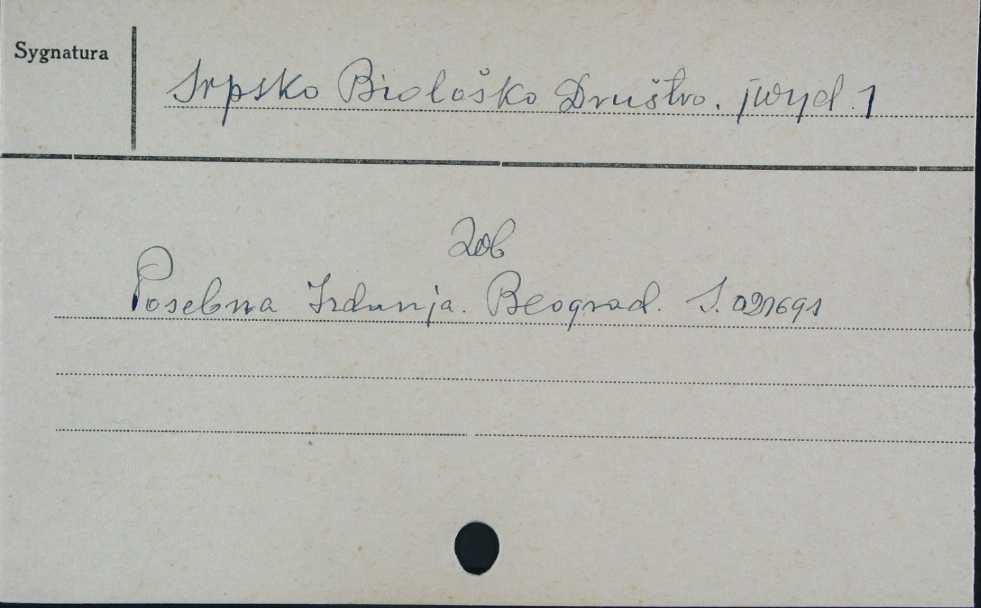 Sygnatura
Srpsko Biološko Društvo. jwyd. 1
Zob
Posebna Izdanja. Beograd. S. 021691